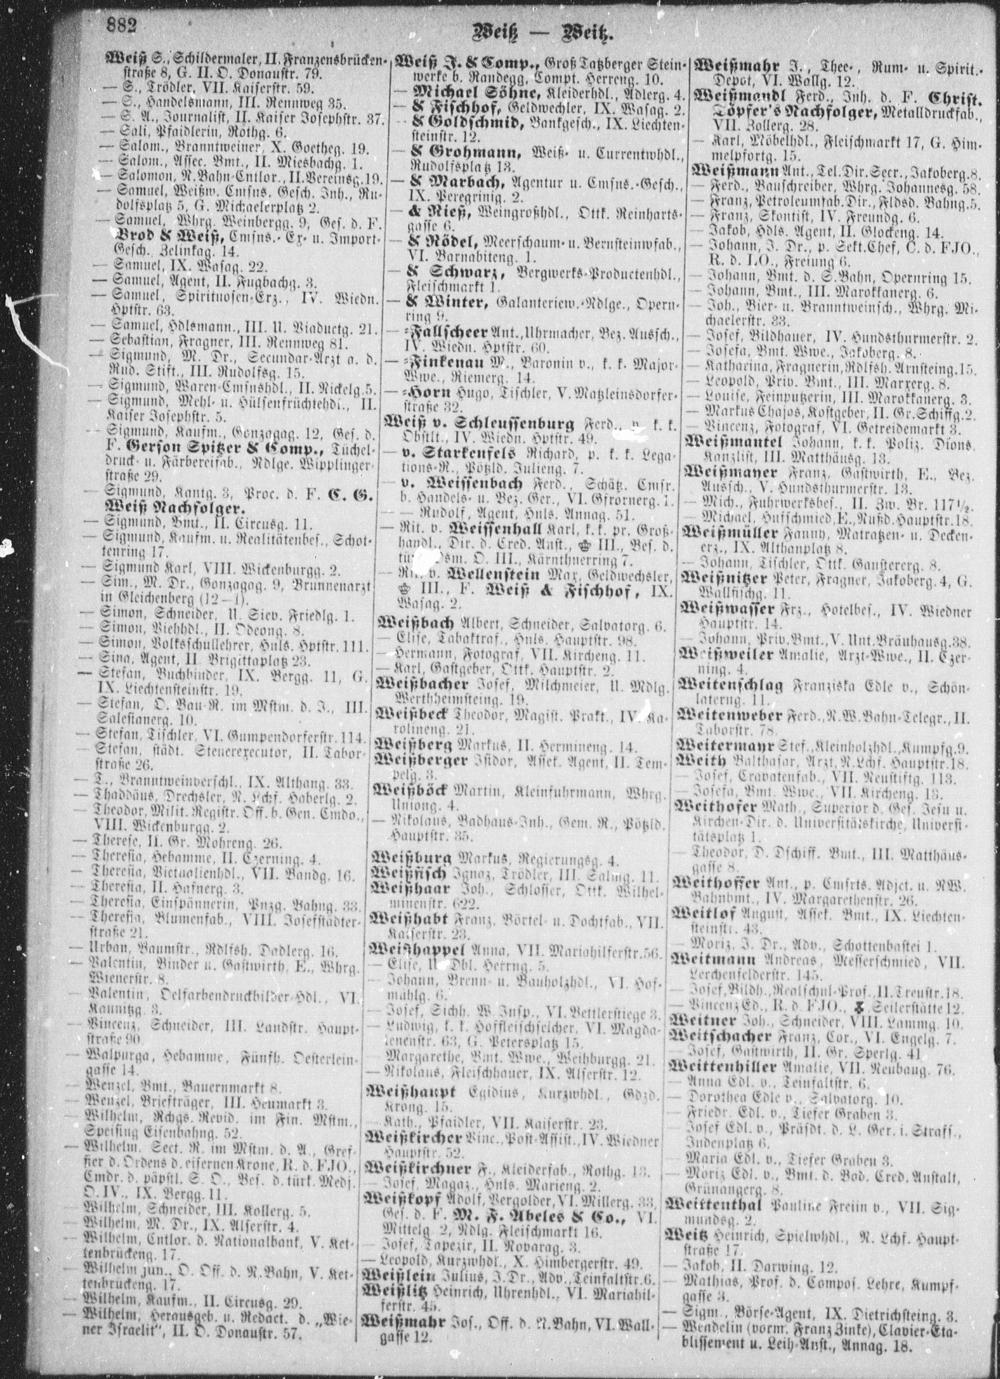 882
Weiß — Weitz.
Weiß S., Schildermaler, II. Franzensbrücken-
straße 8, G. II. O. Donaustr. 79.
— S., Trödler, VII. Kaiserstr. 59.
— S., Handelsmann, III. Rennweg 35.
— S. A., Journalist, II. Kaiser Josephstr. 37.
— Sali, Pfaidlerin, Rothg. 6.
— Salom., Branntweiner, X. Goetheg. 19.
— Salom., Assec. Bmt., II. Miesbachg. 1.
— Salomon, N.Bahn-Cntlor., II. Vereinsg. 19.
— Samuel, Weißw. Cmsns. Gesch. Inh., Ru-
dolfsplatz 5, G. Michaelerplatz 2.
— Samuel, Whrg. Weinbergg. 9, Ges. d. F.
Brod & Weiß, Cmsns.- Ex- u. Import-
Gesch. Zelinkag. 14.
— Samuel, IX. Wasag. 22.
— Samuel, Agent, II. Fugbachg. 3.
— Samuel, Spirituosen-Erz., IV. Wiedn.
Hptstr. 63.
— Samuel, Hdlsmann., III. U. Viaductg. 21.
— Sebastian, Fragner, III. Rennweg 81.
— Sigmund, M. Dr., Secundar-Arzt a. d.
Rud. Stift., III. Rudolfsg. 15.
— Sigmund, Waren-Cmsnshdl., II. Nickelg. 5.
— Sigmund, Mehl- u. Hülsenfrüchtehdl., II.
Kaiser Josephstr. 5.
— Sigmund, Kaufm., Gonzagag. 12, Ges. d.
F. Gerson Spitzer & Comp., Tüchel-
druck- u. Färbereifab., Ndlge. Wipplinger-
straße 29.
— Sigmund, Kantg. 3, Proc. d. F. C. G.
Weiß Nachfolger.
— Sigmund, Bmt., II. Circusg. 11.
— Sigmund, Kaufm. u. Realitätenbes., Schot-
tenring 17.
— Sigmund Karl, VIII. Wickenburgg. 2.
— Sim., M. Dr., Gonzagag. 9, Brunnenarzt
in Gleichenberg (12—1).
— Simon, Schneider, U. Siev. Friedlg. 1.
— Simon, Viehhdl., II. Odeong. 8.
— Simon, Volksschullehrer, Huls. Hptstr. 111.
— Sina, Agent, II. Brigittaplatz 23.
— Stefan, Buchbinder, IX. Bergg. 11, G.
IX. Liechtensteinstr. 19.
— Stefan, O. Bau-R. im Mstm. d. J., III.
Salesianerg. 10.
— Stefan, Tischler, VI. Gumpendorferstr. 114.
— Stefan, städt. Steuerexecutor, II. Tabor-
straße 26.
— T., Branntweinverschl., IX. Althang. 33.
— Thaddäus, Drechsler, N. Lchf. Haberlg. 2.
— Theodor, Milit. Registr. Off. b. Gen. Cmdo.,
VIII. Wickenburgg. 2.
— Therese, II. Gr. Mohreng. 26.
— Theresia, Hebamme, II. Czerning. 4.
— Theresia, Victualienhdl., VII. Bandg. 16.
— Theresia, II. Hafnerg. 3.
— Theresia, Einspännerin, Pnzg. Bahng. 33.
— Theresia, Blumenfab., VIII. Josefstädter-
straße 21.
— Urban, Baumstr., Rdlfsh. Dadlerg. 16.
— Valentin, Binder u. Gastwirth, E., Whrg.
Wienerstr. 8.
— Valentin, Oelfarbendruckbilder-Hdl., VI.
Kaunitzg. 3.
— Vincenz, Schneider, III. Landstr. Haupt-
straße 90.
— Walpurga, Hebamme, Fünfh. Oesterlein-
gasse 14.
— Wenzel, Bmt., Bauernmarkt 8.
— Wenzel, Briefträger, III. Heumarkt 3.
— Wilhelm, Rchgs. Revid. im Fin. Mstm.,
Speising Eisenbahng. 52.
— Wilhelm, Sect. R. im Mstm. d. A., Gref-
fier d. Ordens d. eisernen Krone, R. d. FJO.,
Cmdr. d. päpstl. S. O., Bes. d. türk. Medj.
O. IV., IX. Bergg. 11.
— Wilhelm, Schneider, III. Kollerg. 5.
— Wilhelm, M. Dr., IX. Alserstr. 4.
— Wilhelm, Cntlor. d. Nationalbank, V. Ket-
tenbrückeng. 17.
— Wilhelm jun., O. Off. d. N.Bahn, V. Ket-
tenbrückeng. 17.
— Wilhelm, Kaufm., II. Circusg. 29.
— Wilhelm, Herausgeb. u. Redact. d. „Wie-
ner Israelit“, II. O. Donaustr. 57.
Weiß J. & Comp., Groß Tatzberger Stein-
werke b. Randegg, Compt. Herreng. 10.
— Michael Söhne, Kleiderhdl., Adlerg. 4.
— & Fischhof, Geldwechler, IX. Wasag. 2.
— & Goldschmid, Bankgesch., IX. Liechten-
steinstr. 12.
— & Grohmann, Weiß- u. Currentwhdl.,
Rudolfsplatz 13.
— & Marbach, Agentur u. Cmsns.-Gesch.,
IX. Peregrinig. 2.
— & Rieß, Weingroßhdl., Ottk. Reinharts-
gasse 6.
— & Rödel, Meerschaum- u. Bernsteinwfab.,
VI. Barnabiteng. 1.
— & Schwarz, Bergwerks-Productenhdl.,
Fleischmarkt 1.
— & Winter, Galanteriew.-Ndlge., Opern-
ring 9.
— -Fallscheer Ant., Uhrmacher, Bez. Aussch.,
IV. Wiedn. Hptstr. 60.
— -Finkenau M., Baronin v., k. k. Major-
Wwe., Riemerg. 14.
— -Horn Hugo, Tischler, V. Matzleinsdorfer-
straße 32.
Weiß v. Schleussenburg Ferd., p. k. k.
Obstlt., IV. Wiedn. Hptstr. 49.
— v. Starkenfels Richard, p. k. k. Lega-
tions-R., Pötzld. Julieng. 7.
— v. Weissenbach Ferd., Schätz. Cmsr.
b. Handels- u. Bez. Ger., VI. Gfrornerg. 1.
— — Rudolf, Agent, Huls. Annag. 51.
— Rit. v. Weissenhall Karl, k.k. pr. Groß-
handl., Dir. d. Cred. Anst., III., Bes. d.
türk. Osm. O. III., Kärnthnerring 7.
— Rit. v. Wellenstein Max, Geldwechsler,
III., F. Weiß & Fischhof, IX.
Wasag. 2.
Weißbach Albert, Schneider, Salvatorg. 6.
— Elise, Tabaktraf., Huls. Hauptstr. 98.
— Hermann, Fotograf, VII. Kircheng. 11.
— Karl, Gastgeber, Ottk. Hauptstr. 2.
Weißbacher Josef, Milchmeier, U. Mdlg.
Wertheimsteing. 19.
Weißbeck Theodor, Magist. Prakt., IV. Ka-
rolineng. 21.
Weißberg Markus, II. Hermineng. 14.
Weißberger Isidor, Assek. Agent, II. Tem-
pelg. 3.
Weißböck Martin, Kleinfuhrmann, Whrg.
Uniong. 4.
— Nikolaus, Badhaus-Inh., Gem. R., Pötzld.
Hauptstr. 35.
Weißburg Markus, Regierungsg. 4.
Weißfisch Ignaz, Trödler, III. Salmg. 11.
Weißhaar Joh., Schlosser, Ottk. Wilhel-
minenstr. 622.
Weißhabt Franz, Börtel- u. Dochtfab., VII.
Kaiserstr. 23.
Weißhappel Anna, VII. Mariahilferstr. 56.
— Elise, U. Dbl. Herrng. 5.
— Johann, Brenn- u. Bauholzhdl., VI. Hof-
mühlg. 6.
— Josef, Sichh. W. Insp., VI. Bettlerstiege 3.
— Ludwig, k. k. Hoffleischselcher, VI. Magda-
lenenstr. 63, G. Petersplatz 15.
— Margarethe, Bmt. Wwe., Weihburgg. 21.
— Nikolaus, Fleischhauer, IX. Alserstr. 12.
Weißhaupt Egidius, Kurzwhdl., Gdzd.
Krong. 15.
— Kath., Pfaidler, VII. Kaiserstr. 23.
Weißkircher Vinc., Post-Assist., IV. Wiedner
Hauptstr. 52.
Weißkirchner F., Kleiderfab., Rothg. 13.
— Josef, Magaz., Huls. Marieng. 2.
Weißkopf Adolf, Vergolder, VI. Millerg. 33,
Ges. d. F. M. F. Abeles & Co., VI.
Mittelg. 2, Ndlg. Fleischmarkt 16.
— Josef, Tapezir, II. Novarag. 3.
— Leopold, Kurzwhdl., X. Himbergerstr. 49.
Weißlein Julius, J. Dr., Adv., Teinfaltstr. 6.
Weißlitz Heinrich, Uhrenhdl., VI. Mariahil-
ferstr. 45.
Weißmahr Jos., Off. d. N.Bahn, VI. Wall-
gasse 12.
Weißmahr J., Thee-, Rum- u. Spirit.-
Depot, VI. Wallg. 12.
Weißmandl Ferd., Inh. d. F. Christ.
Töpfer's Nachfolger, Metalldruckfab.,
VII. Zollerg. 28.
— Karl, Möbelhdl., Fleischmarkt 17, G. Him-
melpfortg. 15.
Weißmann Ant., Tel. Dir. Secr., Jakoberg. 8.
— Ferd., Bauschreiber, Whrg. Johannesg. 58.
— Franz, Petroleumfab. Dir., Fldsd. Bahng. 5.
— Franz, Skontist, IV. Freundg. 6.
— Jakob, Hdls. Agent, II. Glockeng. 14.
— Johann, J. Dr., p. Sekt. Chef, C. d. FJO.,
R. d. LO., Freiung 6.
— Johann, Bmt. d. S. Bahn, Opernring 15.
— Johann, Bmt., III. Marokkanerg. 6.
— Joh., Bier- u. Branntweinsch., Whrg. Mi-
chaelerstr. 33.
— Josef, Bildhauer, IV. Hundsthurmerstr. 2.
— Josefa, Bmt. Wwe., Jakoberg. 8.
— Katharina, Fragnerin, Rdlfsh. Arnsteing. 15.
— Leopold, Priv. Bmt., III. Marxerg. 8.
— Louise, Feinputzerin, III. Marokkanerg. 3.
— Markus Chajos, Kostgeber, II. Gr. Schiffg. 2.
— Vincenz, Fotograf, VI. Getreidemarkt 3.
Weißmantel Johann, k. k. Poliz. Dions.
Kanzlist, III. Matthäusg. 13.
Weißmayer Franz, Gastwirth, E., Bez.
Aussch., V. Hundsthurmerstr. 13.
— Mich., Fuhrwerksbes., II. Zw. Br. 117½.
— Michael, Hufschmied, E., Nußd. Hauptstr. 18.
Weißmüller Fanny, Matratzen- u. Decken-
erz., IX. Althanplatz 8.
— Johann, Tischler, Ottk. Ganstererg. 8.
Weißnitzer Peter, Fragner, Jakoberg. 4, G.
Wallfischg. 11.
Weißwasser Frz., Hotelbes., IV. Wiedner
Hauptstr. 14.
— Johann, Priv. Bmt., V. Unt. Bräuhausg. 38.
Weißweiler Amalie, Arzt-Wwe., II. Czer-
ning. 4.
Weitenschlag Franziska Edle v., Schön-
laterng. 11.
Weitenweber Ferd., N.W.Bahn-Telegr., II.
Taborstr. 78.
Weitermayr Stef., Kleinholzhdl., Kumpfg. 9.
Weith Balthasar, Arzt, N. Lchf. Hauptstr. 18.
— Josef, Cravatenfab., VII. Neustiftg. 113.
— Josefa, Bmt. Wwe., VII. Kircheng. 13.
Weithofer Math., Superior d. Ges. Jesu u.
Kirchen-Dir. d. Universitätskirche, Universi-
tätsplatz 1.
— Theodor, D. Dschiff. Bmt., III. Matthäus-
gasse 8.
Weithoffer Ant., p. Cmsrts. Adjct. u. NW.
Bahnbmt., IV. Margarethenstr. 26.
Weitlof August, Assek. Bmt., IX. Liechten-
steinstr. 43.
— Moriz, J. Dr., Adv., Schottenbastei 1.
Weitmann Andreas, Messerschmied, VII.
Lerchenfelderstr. 145.
— Josef, Bildh., Realschul-Prof., II. Treustr. 18.
— Vincenz Ed., R. d. FJO., Seilerstätte 12.
Weitner Joh., Schneider, VIII. Lammg. 10.
Weitschacher Franz, Cor., VI. Engelg. 7.
— Josef, Gastwirth, II. Gr. Sperlg. 41.
Weittenhiller Amalie, VII. Neubaug. 76.
— Anna Edl. v., Teinfaltstr. 6.
— Dorothea Edle v., Salvatorg. 10.
— Friedr. Edl. v., Tiefer Graben 3.
— Josef Edl. v., Präsdt. d. L. Ger. i. Strafs.,
Judenplatz 6.
— Maria Edl. v., Tiefer Graben 3.
— Moriz Edl. v., Bmt. d. Bod. Cred. Anstalt,
Grünangerg. 8.
Weittenthal Pauline Freiin v., VII. Sig-
mundsg. 2.
Weitz Heinrich, Spielwhdl., N. Lchf. Haupt-
straße 17.
— Jakob, II. Darwing. 12.
— Mathias, Prof. d. Compos. Lehre, Kumpf-
gasse 3.
— Sigm., Börse-Agent, IX. Dietrichsteing. 3.
— Wendelin (vorm. Franz Zinke), Clavier-Eta-
blissement u. Leih-Anst., Annag. 18.